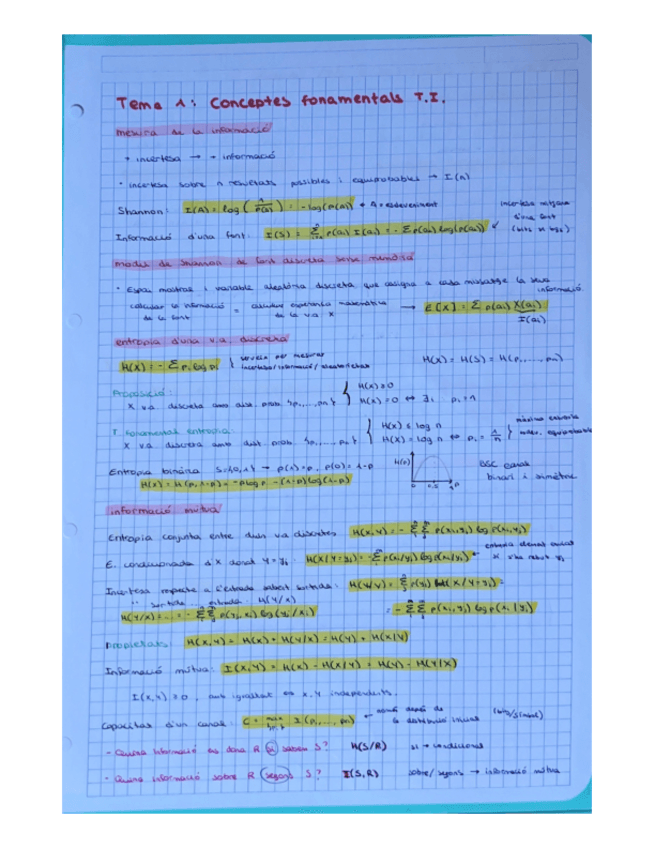 Tema 1: Conceptes fonamentals T.I.
mesura de la informació
+ incertesa → + informació
· incertesa sobre n resultats possibles i equiprobables → I(n)
Shannon: I(A) = log(1/p(A)) = -log(p(A)) A = esdeveniment
incertesa mitjana d'una font
Informació d'una font: I(S) = Σ p(ai) I(ai) = - Σ p(ai) log(p(ai)) (bits si log2)
model de Shannon de font discreta sense memòria
· Espai mostral i variable aleatòria discreta que assigna a cada missatge la seva informació.
calcular la informació de la font = calcular esperança matemàtica de la v.a X → E[X] = Σ p(ai) X(ai)
I(ai)
entropia d'una v.a. discreta
H(X) = - Σ pi log pi } serveix per mesurar incertesa/informació/aleatorietat H(X) = H(S) = H(p1,...,pn)
Proposició:
X v.a. discreta amb dist. prob. {p1,...,pn} { H(X) ≥ 0
H(X) = 0 ⇔ ∃i pi = 1
T. Fonamental entropia:
X v.a. discreta amb dist. prob. {p1,...,pn} { H(X) ≤ log n
H(X) = log n ⇔ pi = 1/n } màxima entropia
Entropia binària S={0,1} → p(1)=p, p(0)=1-p
H(X) = H(p,1-p) = -p log p - (1-p) log(1-p)
H(p)
0 0.5 1 p
BSC canal binari i simètric
informació mútua
Entropia conjunta entre dues va discretes H(X,Y) = - ΣΣ p(xi,yj) log p(xi,yj)
E. condicionada d'X donat Y=yj: H(X/Y=yj) = - Σ p(xi/yj) log p(xi/yj) ← entropia del canal si s'ha rebut yj
Incertesa respecte a l'entrada sabent sortida: H(X/Y) = Σ p(yj) H(X/Y=yj) =
" sortida " entrada: H(Y/X)
H(Y/X) = ... = - ΣΣ p(yj,xi) log(yj/xi) = - ΣΣ p(xi,yj) log p(xi|yj)
Propietats: H(X,Y) = H(X) + H(Y/X) = H(Y) + H(X|Y)
Informació mútua: I(X,Y) = H(X) - H(X/Y) = H(Y) - H(Y/X)
I(X,Y) ≥ 0, amb igualtat ⇔ X,Y independents.
Capacitat d'un canal: C = max I(p1,...,pn) ← només depèn de la distribució inicial (bits/símbol)
- Quina informació es dona R si sabem S? H(S/R) si → condicional
· Quina informació sobre R segons S? I(S,R) sobre/segons → informació mútua